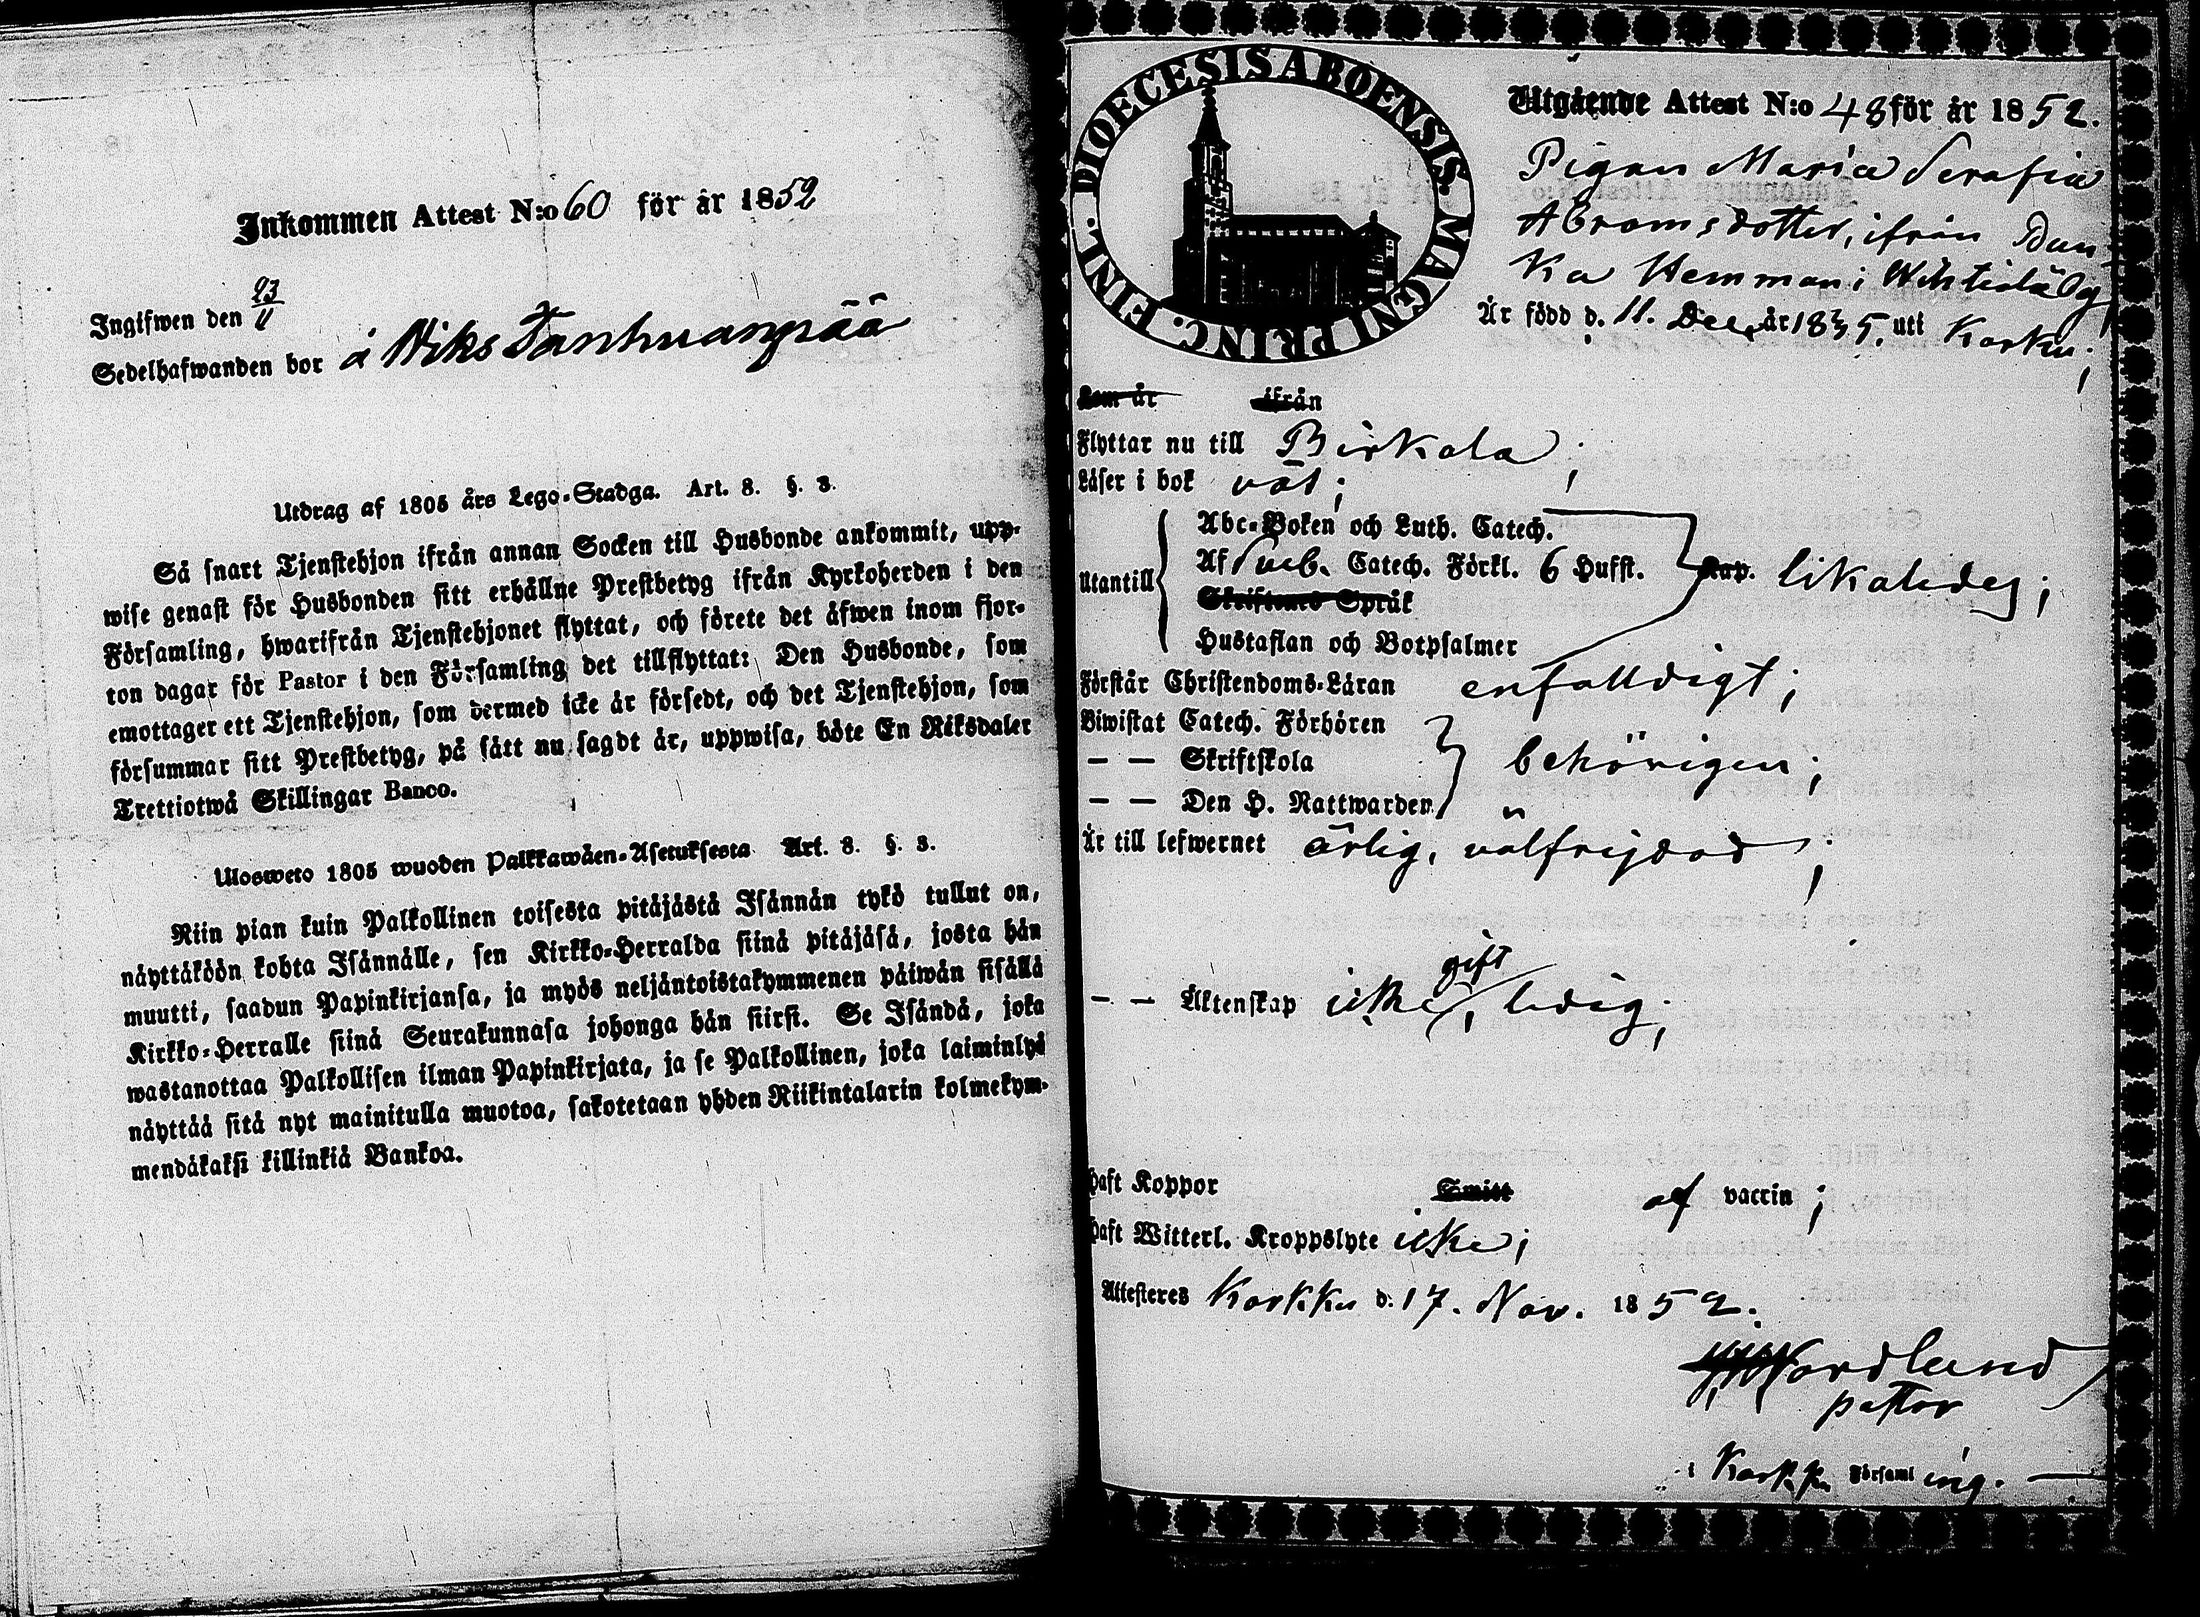 Inkommen Attest N:o 60 för år 1852
Ingifwen den 23/11
Sedelhafwanden bor å Niks Tanhuanpää
Utdrag af 1805 års Lego-Stadga. Art. 8. §. 3.
Så snart Tjenstehjon ifrån annan Socken till Husbonde ankommit, upp-
wise genast för Husbonden sitt erhållne Prestbetyg ifrån Kyrkoherden i den
Församling, hwarifrån Tjenstehjonet flyttat, och förete det äfwen inom fjor-
ton dagar för Pastor i den Församling det tillflyttat: Den Husbonde, som
emottager ett Tjenstehjon, som dermed icke är försedt, och det Tjenstehjon, som
försummar sitt Prestbetyg, på sätt nu sagdt är, uppwisa, böte En Riksdaler
Trettiotwå Skillingar Banco.
Ulosweto 1805 wuoden Palkkawäen-Asetuksesta Art. 8. §. 3.
Niin pian kuin Palkollinen toisesta pitäjästä Isännän tykö tullut on,
näyttäköön kohta Isännälle, sen Kirkko-Herralda siinä pitäjäsä, josta hän
muutti, saadun Papinkirjansa, ja myös neljäntoistakymmenen päiwän sisällä
Kirkko-Herralle siinä Seurakunnasa johonga hän siirsi. Se Isändä, joka
wastanottaa Palkollisen ilman Papinkirjata, ja se Palkollinen, joka laiminlyö
näyttää sitä nyt mainitulla muotoa, sakotetaan yhden Riikintalarin kolmekym-
mendäkaksi killinkiä Bankoa.
DIOECESIS ABOENSIS. MAGNI PRINC. FINL.
Utgående Attest N:o 48 för år 1852.
Pigan Maria Serafia
Abramsdotter, ifrån
Hemman i
Är född d. 11. Dec. år 1835. uti Karku;
Kom år ifrån
Flyttar nu till Birkala;
Läser i bok väl;
Utantill
Abc-Boken och Luth. Catech.
Af Sveb. Catech. Förkl. 6 Hufst. Kap. likaledes;
Skriftenes Språk
Hustaflan och Botpsalmer
Förstår Christendoms-Läran enfalldigt;
Biwistat Catech. Förhören
— — Skriftskola behörigen;
— — Den H. Nattwarden
Är till lefwernet ärlig, välfrejdad;
— — Äktenskap icke gift, ledig;
Haft Koppor Smitt af vaccin;
Haft Witterl. Kroppslyte icke;
Attesteres Karkku d. 17. Nov. 1852.
Nordlund
pastor
i Karkku Församl ing.